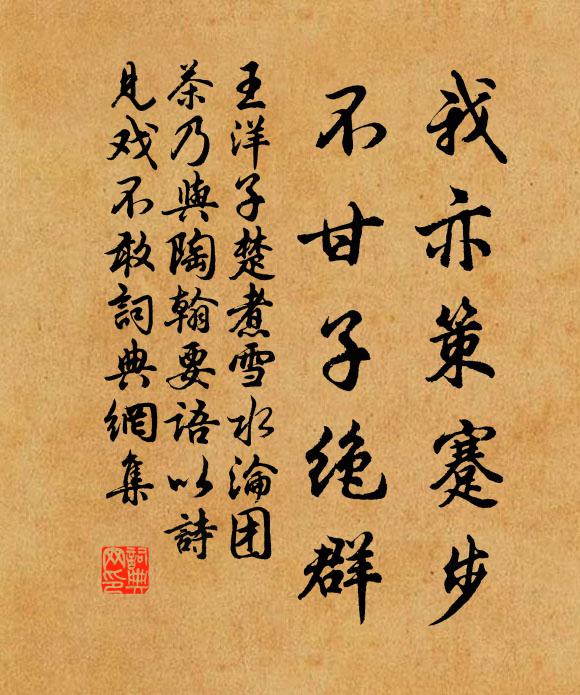 我亦策蹇步
不甘子绝群
王洋子楚煮雪水瀹团
茶乃與陶翰要語以詩
見戏不敢詞典網集
詞典网印